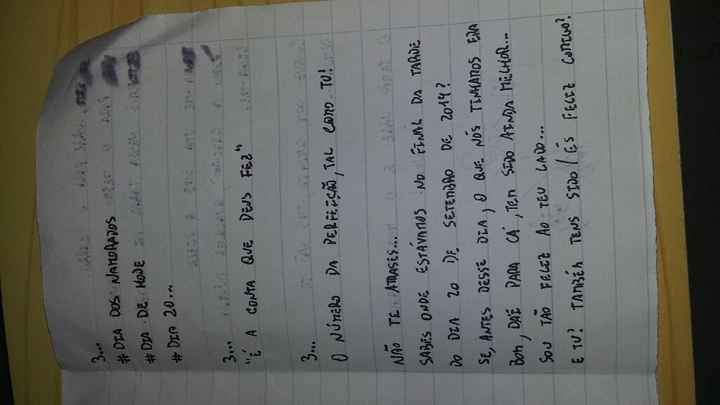 3...
# DIA DOS NAMORADOS
# DIA DE HOJE
# DIA 20...
3...
"É A CONTA QUE DEUS FEZ"
3...
O NÚMERO DA PERFEIÇÃO, TAL COMO TU!
NÃO TE ATRASES...
SABES ONDE ESTÁVAMOS NO FINAL DA TARDE
DO DIA 20 DE SETEMBRO DE 2014?
SE, ANTES DESSE DIA, O QUE NÓS TÍNHAMOS ERA
BOM, DAÍ PARA CÁ, TEM SIDO AINDA MELHOR...
SOU TÃO FELIZ AO TEU LADO...
E TU? TAMBÉM TENS SIDO/ÉS FELIZ COMIGO?